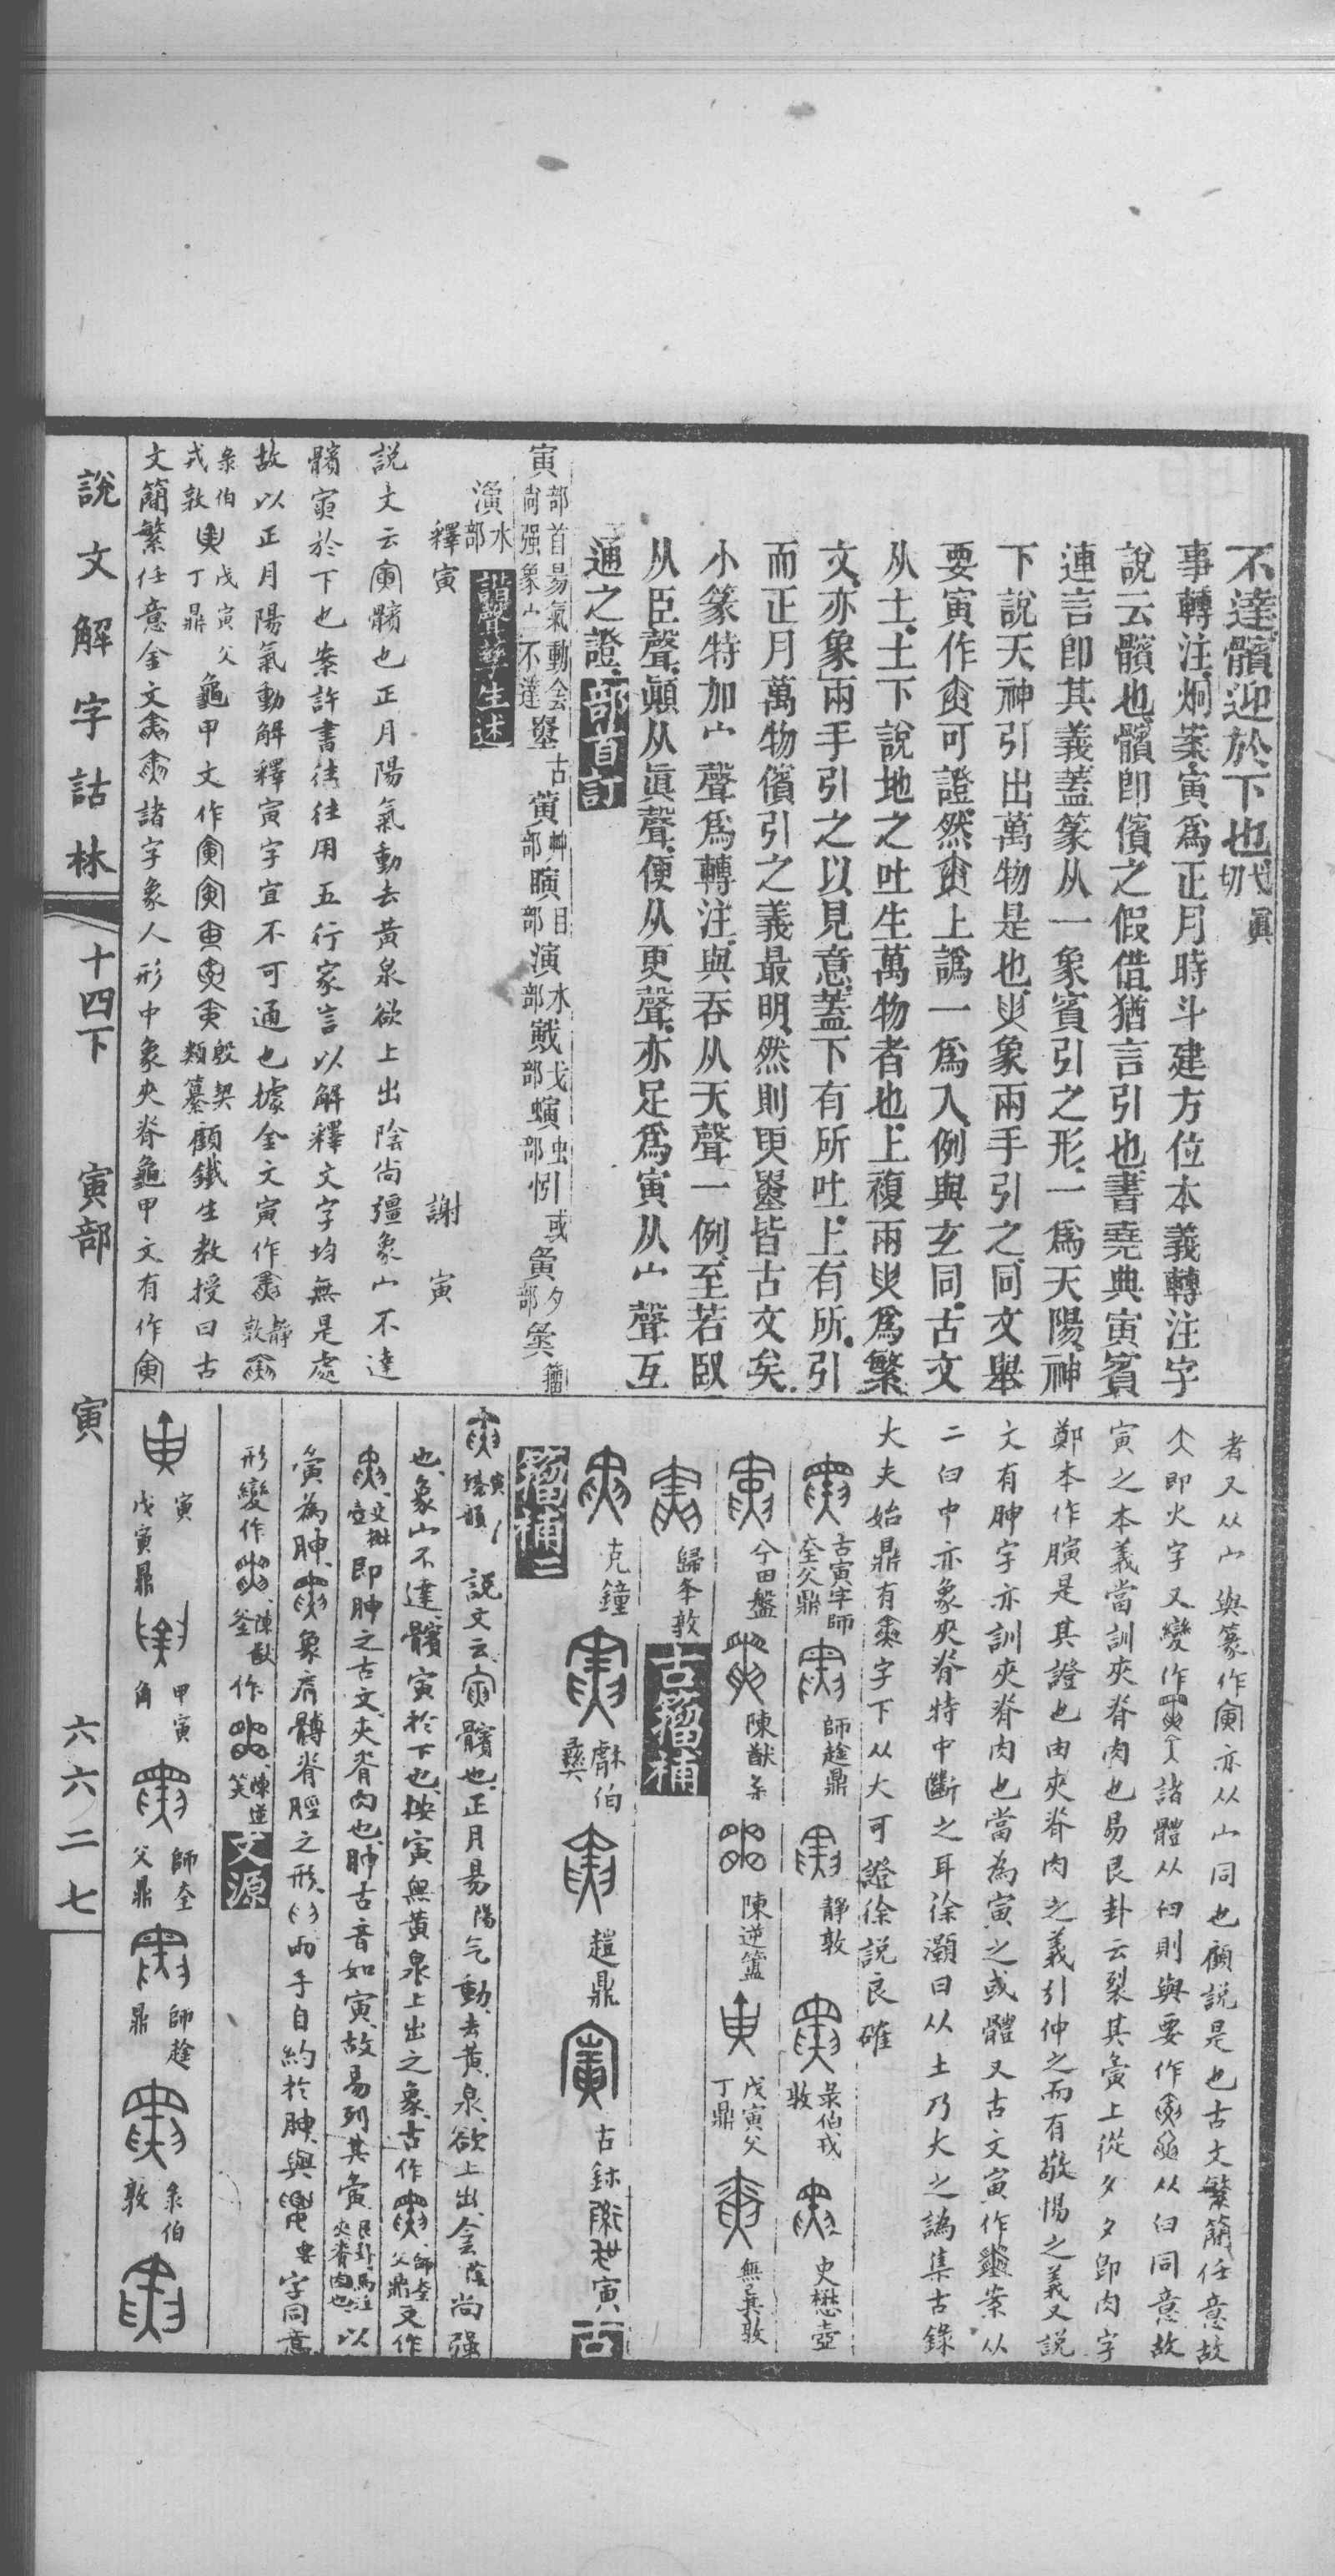 不達髕迎於下也弋眞切
事轉注炯案寅爲正月時斗建方位本義轉注字
說云髕也髕卽儐之假借猶言引也書堯典寅賓
連言卽其義蓋篆从一象賓引之形一爲天陽神
下說天神引出萬物是也𦥑象兩手引之同文舉
要寅作可證然上譌一爲入例與玄同古文
从土土下說地之吐生萬物者也上複兩爲繁
文亦象兩手引之以見意蓋下有所吐上有所引
而正月萬物儐引之義最明然則皆古文矣
小篆特加宀聲爲轉注與吞从天聲一例至若臥
从臣聲顚从眞聲便从更聲亦足爲寅从宀聲互
通之證部首訂
寅部首昜氣動会尚强象宀不達 古 螾艸部 瞚目部 演水部 戭戈部 螾虫部 蚓或 夤夕部 籀
濥水部 諧聲孳生述
釋寅 謝寅
說文云寅髕也正月陽氣動去黃泉欲上出陰尚彊象宀不達
髕寅於下也案許書往往用五行家言以解釋文字均無是處
故以正月陽氣動解釋寅字宜不可通也據金文寅作靜敦
彔伯戎敦 戊寅父丁鼎 龜甲文作殷契類纂顧鐵生教授曰古
文簡繁任意金文諸字象人形中象夾脊龜甲文有作
者又从宀與篆作寅亦从宀同也顧說是也古文繁簡任意故
即火字又變作諸體从臼則與要作从臼同意故
寅之本義當訓夾脊肉也易艮卦云裂其夤上從夕夕卽肉字
鄭本作䐄是其證也由夾脊肉之義引伸之而有敬惕之義又說
文有胂字亦訓夾脊肉也當為寅之或體又古文寅作案从
二臼中亦象夾脊特中斷之耳徐灝曰从土乃大之譌集古錄
大夫始鼎有字下从大可證徐說良確
古寅字師𡘇父鼎 師趛鼎 靜敦 彔伯戎敦 史懋壺
兮田盤 陳猷釜 陳逆簠 戊寅父丁鼎 無㠱敦
歸夆敦 古籀補
克鐘 彝伯 趞鼎 古鉢 寅 古
籀補二
說文云寅髕也正月昜陽气動去黃泉欲上出侌陰尚强
也象宀不達髕寅於下也按寅無黃泉上出之象古作師𡘇父鼎又作
史懋壺即胂之古文夾脊肉也胂古音如寅故易列其夤艮卦馬注夾脊肉也以
夤為胂象肩髆脊脛之形兩手自約於胂與要字同意
形變作陳猷釜作陳逆簠文源
寅 戊寅鼎 甲寅角 師𡘇父鼎 師趛鼎 彔伯敦
說文解字詁林 十四下 寅部 寅 六六二七